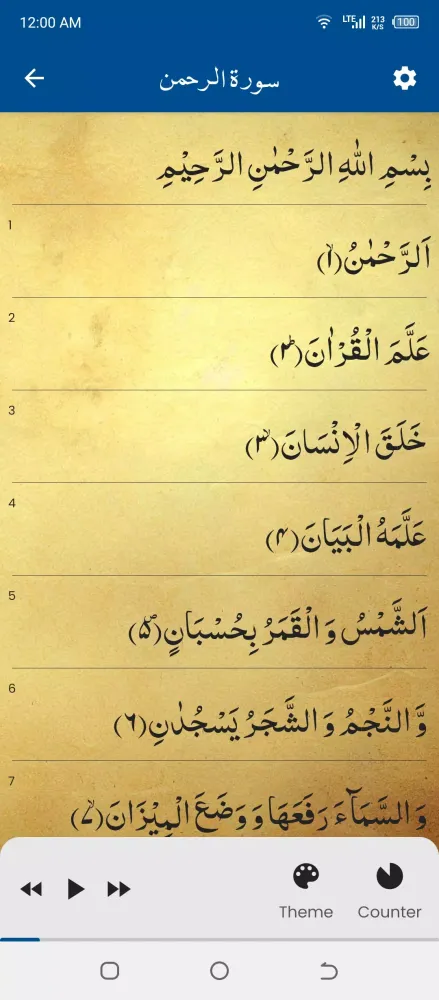 12:00 AM
LTE 213 K/S 100
سورة الرحمن
بِسْمِ اللّٰهِ الرَّحْمٰنِ الرَّحِیْمِ
1
اَلرَّحْمٰنُۙ(۱)
2
عَلَّمَ الْقُرْاٰنَؕ(۲)
3
خَلَقَ الْاِنْسَانَۙ(۳)
4
عَلَّمَهُ الْبَیَانَ(۴)
5
اَلشَّمْسُ وَ الْقَمَرُ بِحُسْبَانٍ۪(۵)
6
وَّ النَّجْمُ وَ الشَّجَرُ یَسْجُدٰنِ(۶)
7
وَ السَّمَآءَ رَفَعَهَا وَ وَضَعَ الْمِیْزَانَۙ(۷)
Theme
Counter